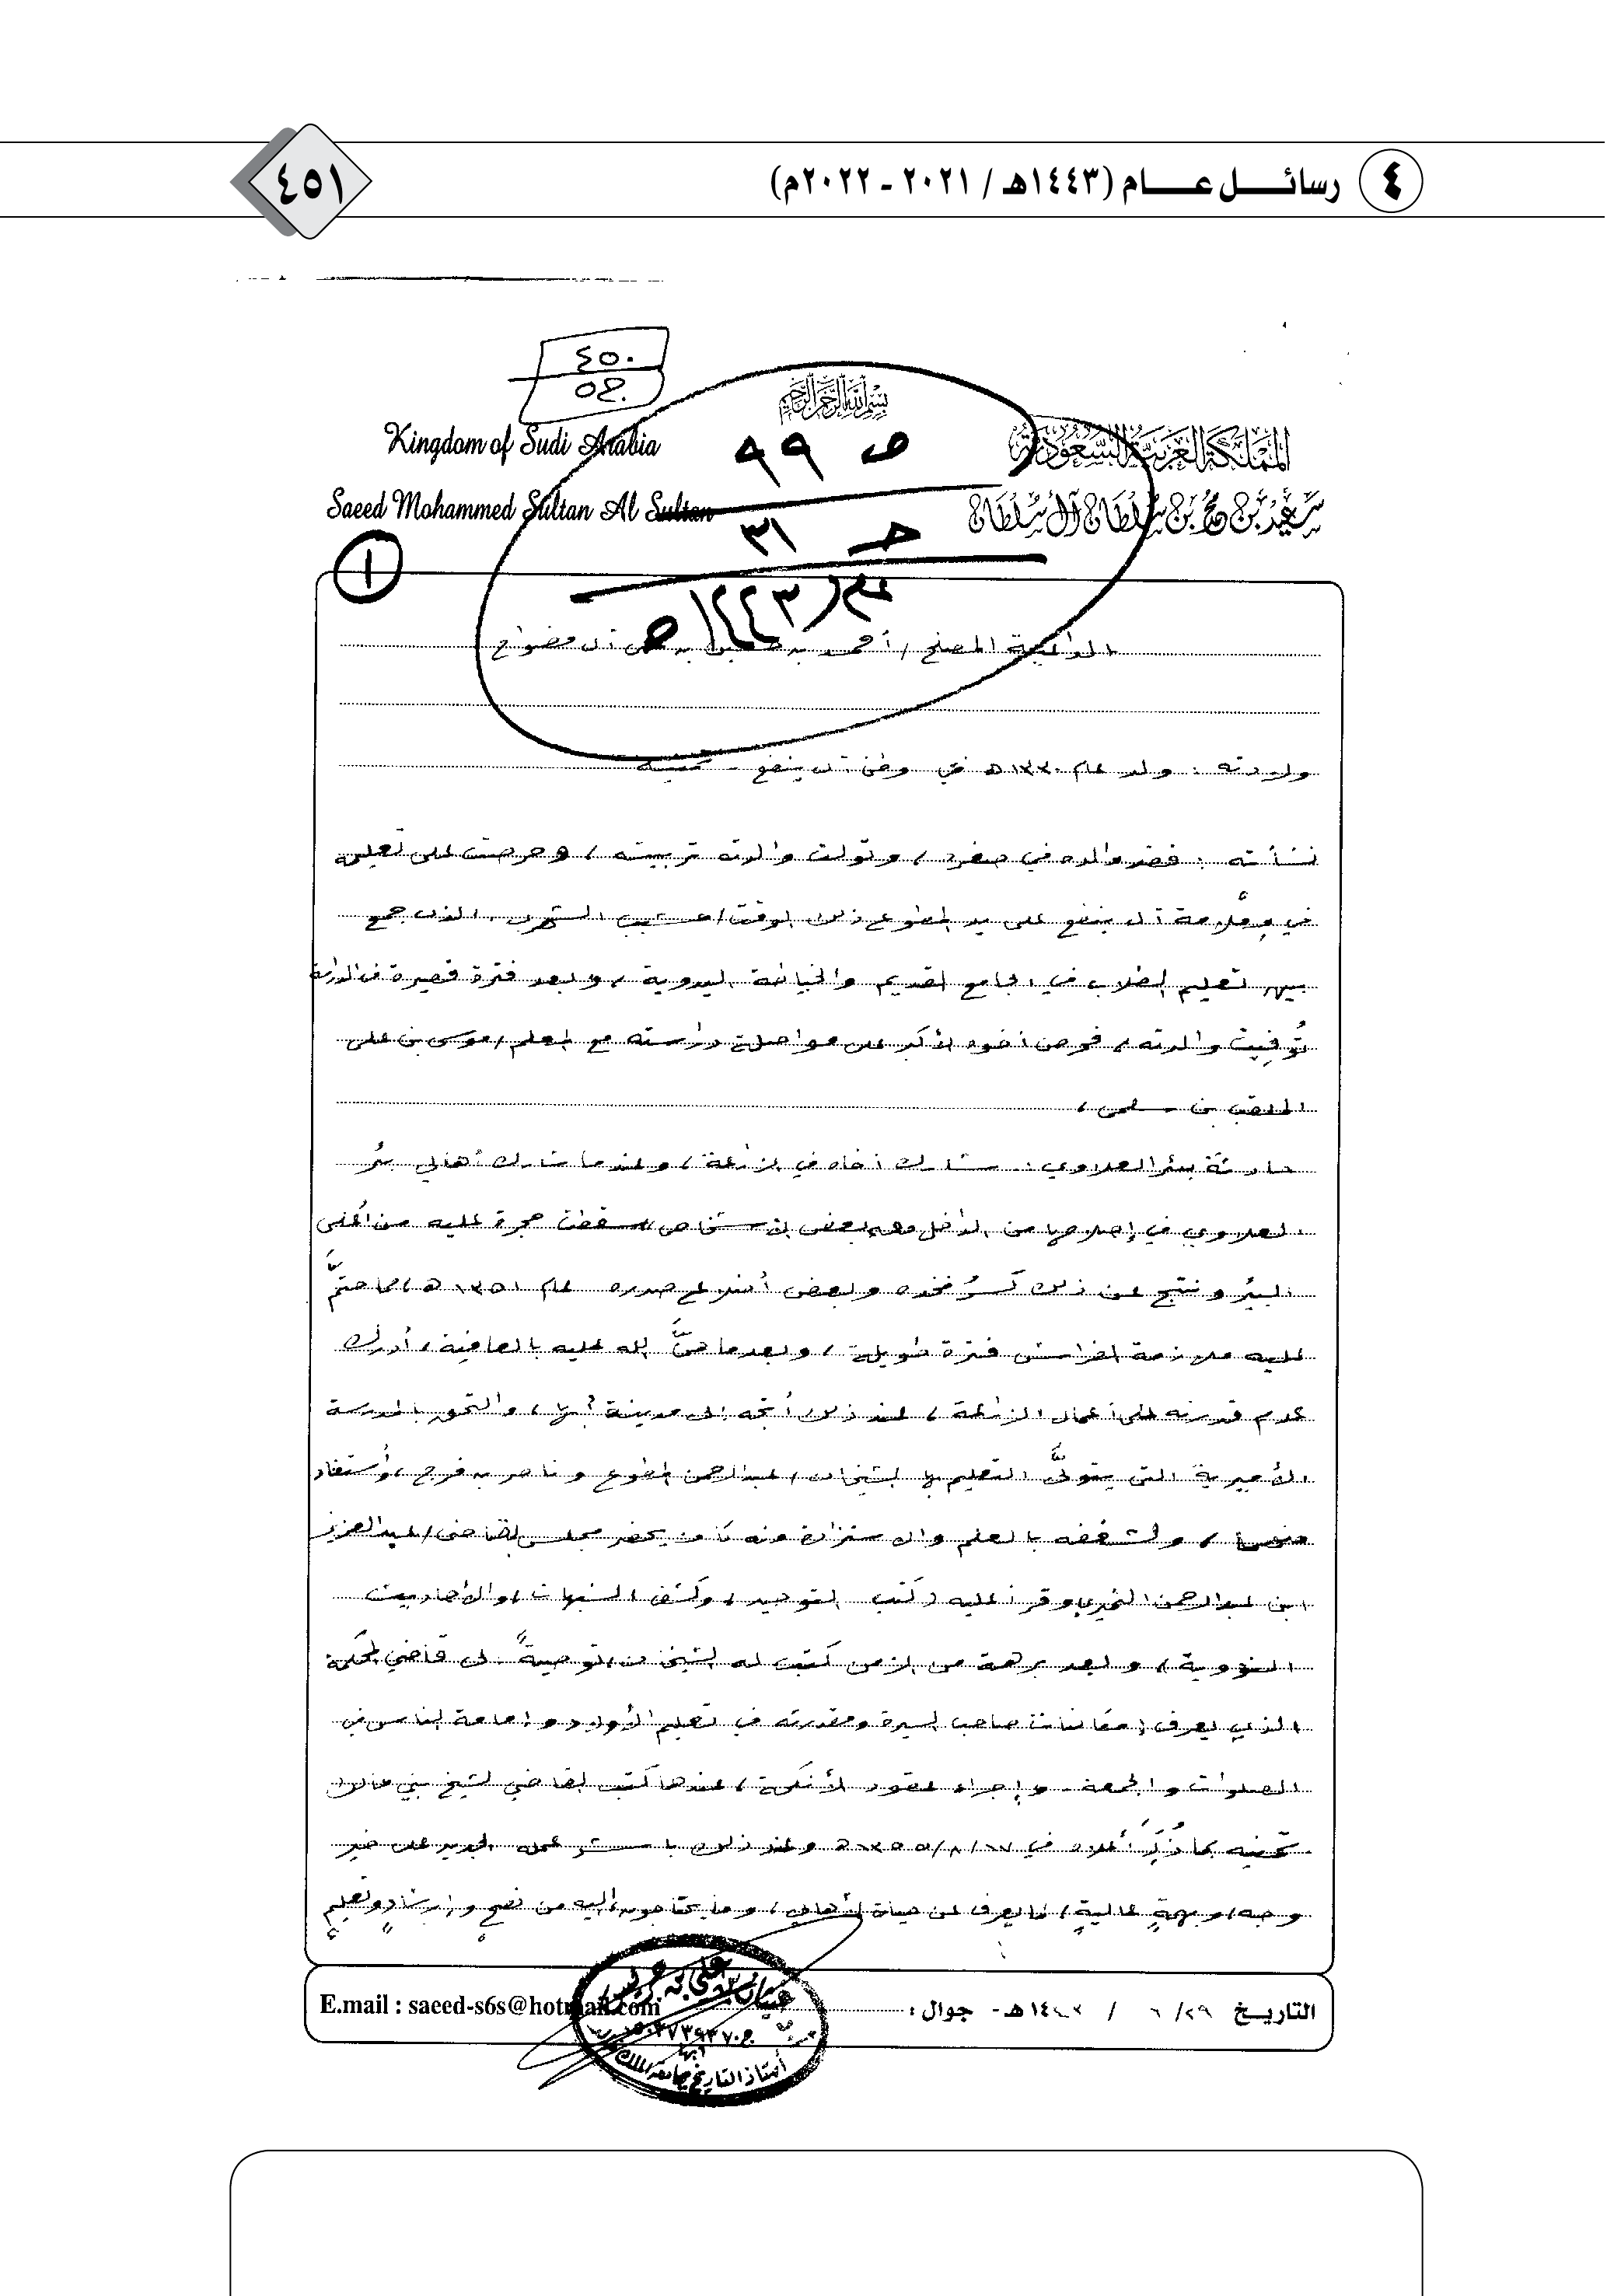 ٤ رسائــــل عـــــام (١٤٤٣هـ / ٢٠٢١ ـ ٢٠٢٢م)
٤٥١
٤٥٠
٥٢٠
بسم الله الرحمن الرحيم
ص ٩٩
حـ ٣١
Kingdom of Sudi Arabia
المملكة العربية السعودية
Saeed Mohammed Sultan Al Sultan
سعيد بن محمد بن سلطان آل سلطان
١
الداعية المصلح / أحمد بن آل مضواح
ولادته : ولد عام ١٣٣٠هـ في وطن آل ينفع -
نشأته : فقد والده في صغره ، وتولت والدته تربيته ، وحرصت على تعليمه
في آل ينفع على يد المطوع ذلك الوقت / الذي جمع
بين تعليم الطلاب في الجامع القديم والخياطة اليدوية ، وبعد فترة قصيرة من الدراسة
تُوفيت والدته ، فحرص أخوه الأكبر على مواصلة دراسته مع المعلم / موسى بن علي
الملقب بن سلمى ،
حادثة بئر العلاوي : شارك أخاه في الزراعة ، وعندما شارك أهالي بئر
العلاوي في إصلاحها من الداخل معه بعض الأشخاص سقطت حجرة عليه من أعلى
البئر ونتج عن ذلك كسرُ فخذه وبعض أضلاع صدره عام ١٣٥١هـ ، مما حتّم
عليه ملازمة الفراش فترة طويلة ، وبعدما منَّ الله عليه بالعافية ، أدرك
عدم قدرته على أعمال الزراعة ، عند ذلك أتجه إلى مدينة أبها ، والتحق بالمدرسة
الأميرية التي يتولَّى التعليم بها الشيخان / عبدالرحمن المطوع وناصر بن فرج ، وأستفاد
منهما ، ولشغفه بالعلم والاستزادة منه كان يحضر مجلس القاضي / عبدالعزيز
ابن عبدالرحمن وقرأ عليه كتب التوحيد ، وكشف الشبهات ، والأحاديث
النووية ، وبعد برهة من الزمن كتب له الشيخان توصيةً إلى قاضي المحكمة
الذي يعرف إمكانات صاحب السيرة ومقدرته في تعليم الأولاد وإمامة الناس في
الصلوات والجمعة وإجراء عقود الأنكحة ، عندها كتب القاضي لشيخ بني
بما ذُكِرَ أعلاه في ١٧/ ٨/ ١٣٥٥هـ وعند ذلك باشر عمله الجديد على خير
وجه ، وبهمةٍ عاليةٍ ، لما يعرف عن حياة الأهالي ، وما يحتاجونه إليه من نصحٍ وإرشادٍ وتعليمٍ
التاريخ ٢٩/ ٦ / ١٤٤٣هـ - جوال :
E.mail : saeed-s6s@hotmail.com
أستاذ التاريخ بجامعة الملك
أبها